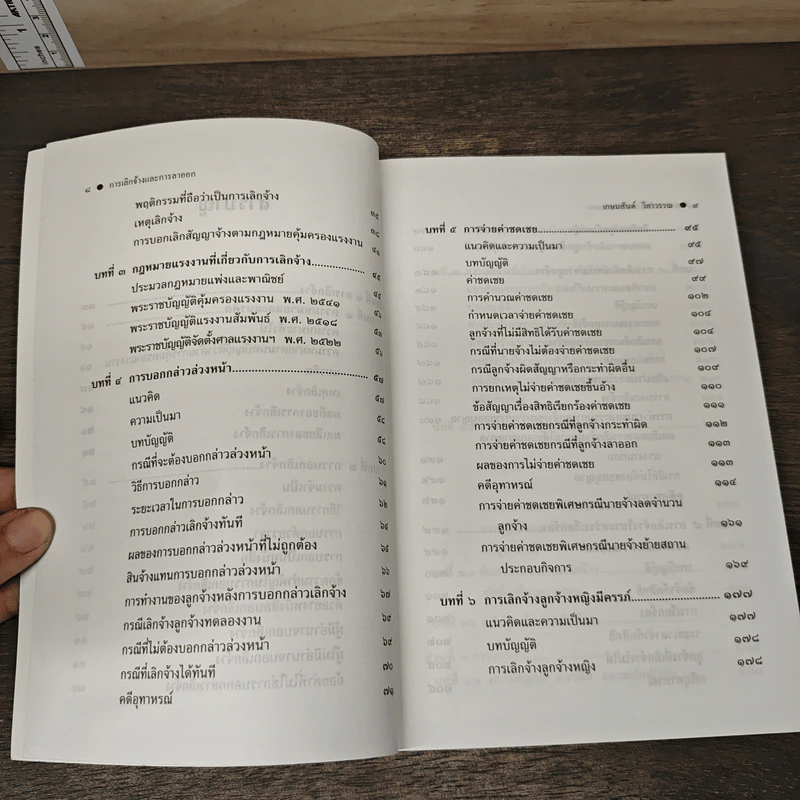 ๘ ● การเลิกจ้างและการลาออก
พฤติกรรมที่ถือว่าเป็นการเลิกจ้าง ๓๕
เหตุเลิกจ้าง ๓๘
การบอกเลิกสัญญาจ้างตามกฎหมายคุ้มครองแรงงาน ๔๑
บทที่ ๓ กฎหมายแรงงานที่เกี่ยวกับการเลิกจ้าง ๔๕
ประมวลกฎหมายแพ่งและพาณิชย์ ๔๕
พระราชบัญญัติคุ้มครองแรงงาน พ.ศ. ๒๕๔๑ ๔๖
พระราชบัญญัติแรงงานสัมพันธ์ พ.ศ. ๒๕๑๘ ๕๑
พระราชบัญญัติจัดตั้งศาลแรงงานฯ พ.ศ. ๒๕๒๒ ๕๖
บทที่ ๔ การบอกกล่าวล่วงหน้า ๕๗
แนวคิด ๕๗
ความเป็นมา ๕๘
บทบัญญัติ ๕๘
กรณีที่จะต้องบอกกล่าวล่วงหน้า ๖๐
วิธีการบอกกล่าว ๖๑
ระยะเวลาในการบอกกล่าว ๖๒
การบอกกล่าวเลิกจ้างทันที ๖๔
ผลของการบอกกล่าวล่วงหน้าที่ไม่ถูกต้อง ๖๕
สินจ้างแทนการบอกกล่าวล่วงหน้า ๖๖
การทำงานของลูกจ้างหลังการบอกกล่าวเลิกจ้าง ๖๗
กรณีเลิกจ้างลูกจ้างทดลองงาน ๖๙
กรณีที่ไม่ต้องบอกกล่าวล่วงหน้า ๖๙
กรณีที่เลิกจ้างได้ทันที ๗๐
คดีอุทาหรณ์ ๗๑
เกษมสันต์ วิลาวรรณ ● ๙
บทที่ ๕ การจ่ายค่าชดเชย ๙๕
แนวคิดและความเป็นมา ๙๕
บทบัญญัติ ๙๗
ค่าชดเชย ๙๙
การคำนวณค่าชดเชย ๑๐๒
กำหนดเวลาจ่ายค่าชดเชย ๑๐๔
ลูกจ้างที่ไม่มีสิทธิได้รับค่าชดเชย ๑๐๔
กรณีที่นายจ้างไม่ต้องจ่ายค่าชดเชย ๑๐๗
กรณีลูกจ้างผิดสัญญาหรือกระทำผิดอื่น ๑๐๙
การยกเหตุไม่จ่ายค่าชดเชยขึ้นอ้าง ๑๑๐
ข้อสัญญาเรื่องสิทธิเรียกร้องค่าชดเชย ๑๑๑
การจ่ายค่าชดเชยกรณีที่ลูกจ้างกระทำผิด ๑๑๒
การจ่ายค่าชดเชยกรณีที่ลูกจ้างลาออก ๑๑๓
ผลของการไม่จ่ายค่าชดเชย ๑๑๓
คดีอุทาหรณ์ ๑๑๔
การจ่ายค่าชดเชยพิเศษกรณีนายจ้างลดจำนวน
ลูกจ้าง ๑๖๑
การจ่ายค่าชดเชยพิเศษกรณีนายจ้างย้ายสถาน
ประกอบกิจการ ๑๖๙
บทที่ ๖ การเลิกจ้างลูกจ้างหญิงมีครรภ์ ๑๗๗
แนวคิดและความเป็นมา ๑๗๗
บทบัญญัติ ๑๗๘
การเลิกจ้างลูกจ้างหญิง ๑๗๘